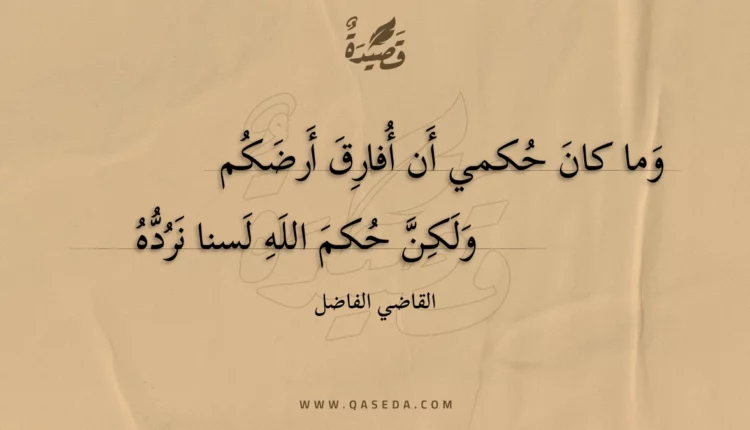 قَصِيْدَةٌ
وَما كانَ حُكمي أَن أُفارِقَ أَرضَكُم
وَلَكِنَّ حُكمَ اللَهِ لَسنا نَرُدُّهُ
القاضي الفاضل
WWW.QASEDA.COM